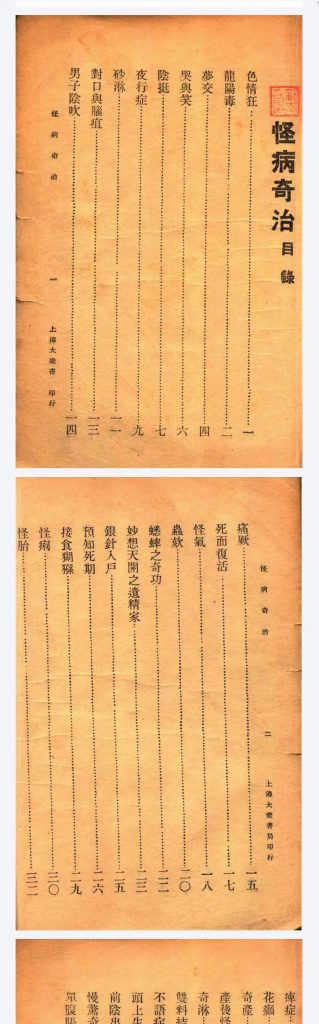 怪病奇治 目錄
色情狂 一
龍陽毒 二
夢交 四
哭與笑 六
陰挺 七
夜行症 九
砂淋 一一
對口與腦疽 一三
男子陰吹 一四
怪病奇治 一 上海大衆書 印行
怪病奇治 二 上海大衆書局印行
痛厥 一五
死而復活 一七
怪氣 一八
蟲欬 二〇
蟋蟀之奇功 二二
妙想天開之遺精家 二三
銀針入戶 二五
預知死期 二六
接食獼猴 二九
怪痢 三〇
怪胎 三二
痺症
花癲
奇產
產後怪
奇淋
雙料結
不語症
頭上生
前陰出
慢驚奇
單腹脹